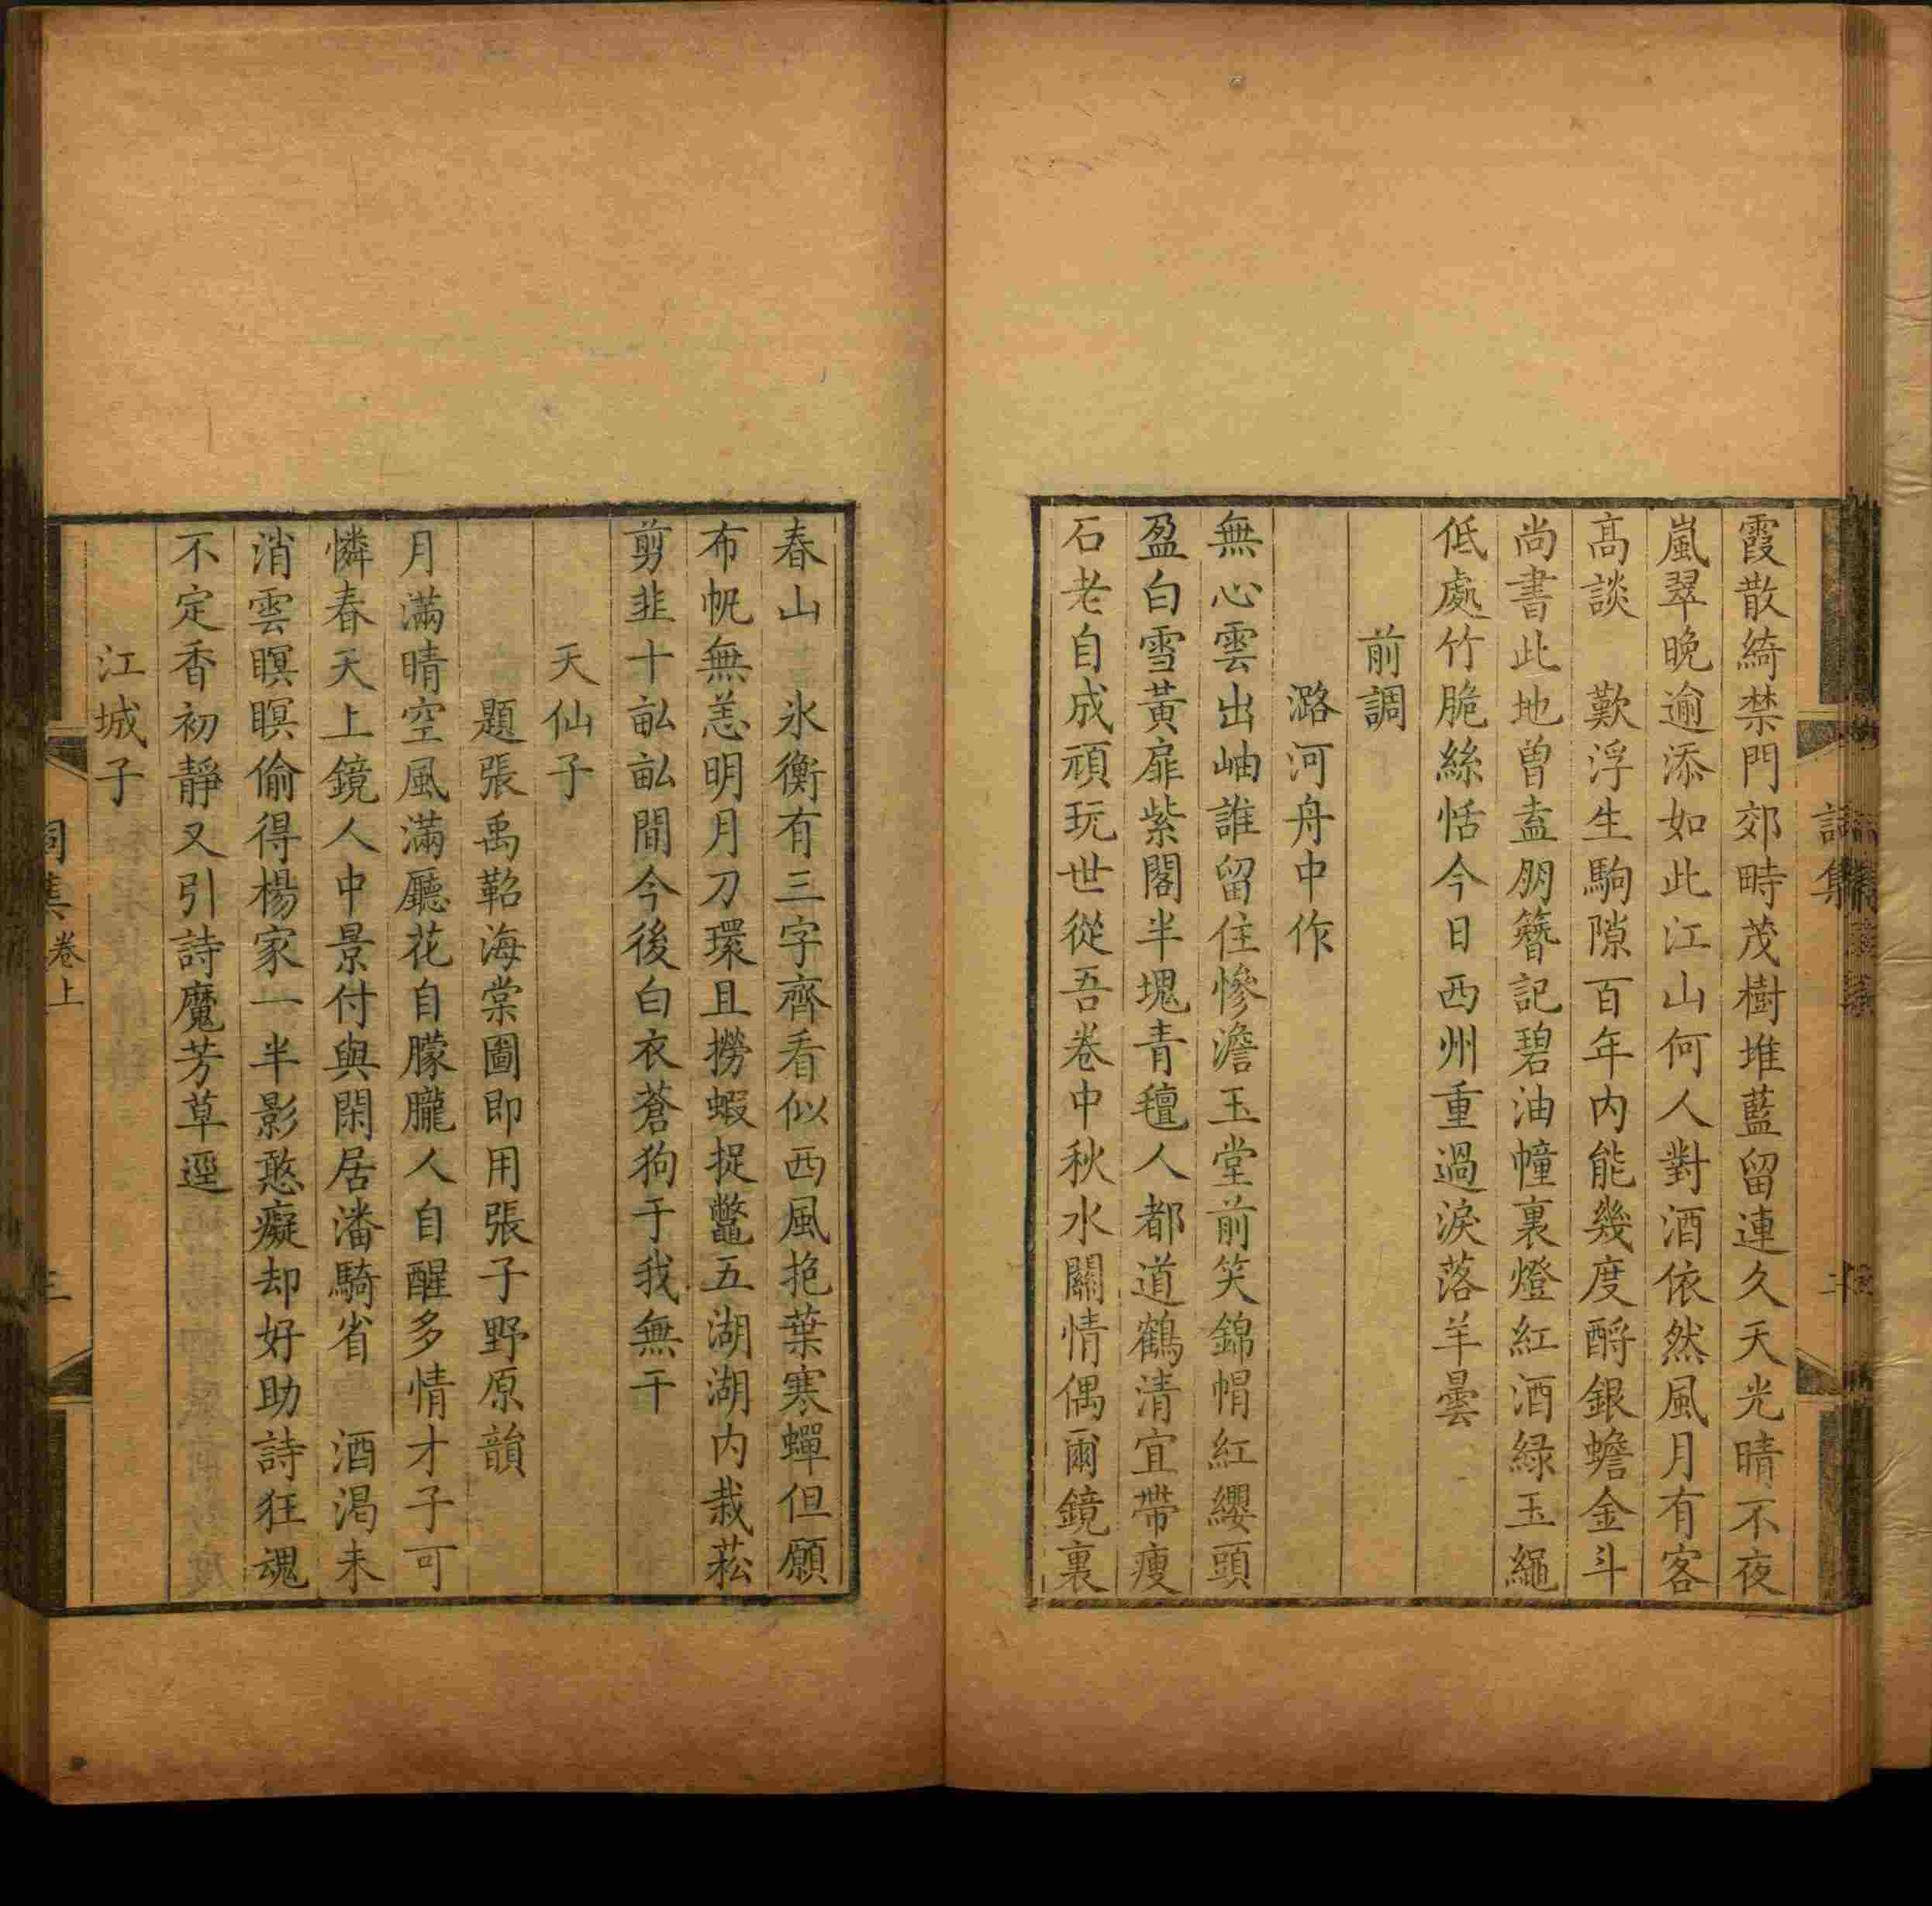 霞散綺禁門郊畤茂樹堆藍留連久天光晴不夜
嵐翠晚逾添如此江山何人對酒依然風月有客
高談　歎浮生駒隙百年内能幾度酹銀蟾金斗
尚書此地曾盍朋簪記碧油幢裏燈紅酒緑玉繩
低處竹脆絲恬今日西州重過淚落羊曇
前調
潞河舟中作
無心雲出岫誰留住慘澹玉堂前笑錦帽紅纓頭
盈白雪黃扉紫閣半塊青氊人都道鶴清宜帶瘦
石老自成頑玩世從吾卷中秋水關情偶爾鏡裏
春山　氷衡有三字齊看似西風抱葉寒蟬但願
布帆無恙明月刀環且撈蝦捉鼈五湖湖内栽菘
剪韭十畝畝間今後白衣蒼狗于我無干
天仙子
題張禹鞀海棠圖即用張子野原韻
月滿晴空風滿廳花自朦朧人自醒多情才子可
憐春天上鏡人中景付與閑居潘騎省　酒渴未
消雲瞑瞑偷得楊家一半影憨癡却好助詩狂魂
不定香初靜又引詩魔芳草逕
江城子
詞集
卷上
三